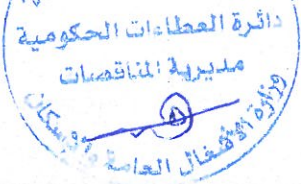 دائرة العطاءات الحكومية
مديرية المناقصات
وزارة الاشغال العامة والإسكان